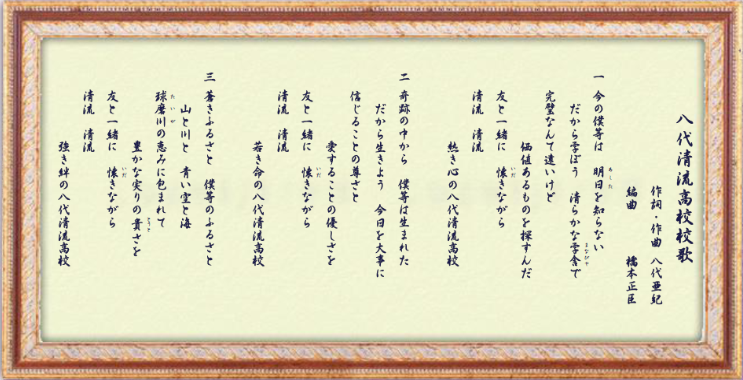 八代清流高校校歌
作詞・作曲 八代亜紀
編曲 橋本正臣
一 今の僕等は 明日を知らない
あした
だから学ぼう 清らかな学舎で
まなびや
完璧なんて遠いけど
価値あるものを探すんだ
友と一緒に 懐きながら
いだ
清流 清流
熱き心の八代清流高校
二 奇跡の中から 僕等は生まれた
だから生きよう 今日を大事に
信じることの尊さと
愛することの優しさを
友と一緒に 懐きながら
いだ
清流 清流
若き命の八代清流高校
三 蒼きふるさと 僕等のふるさと
山と川と 青い空と海
球磨川の恵みに包まれて
たいが
豊かな実りの貴さを
とうと
友と一緒に 懐きながら
いだ
清流 清流
強き絆の八代清流高校